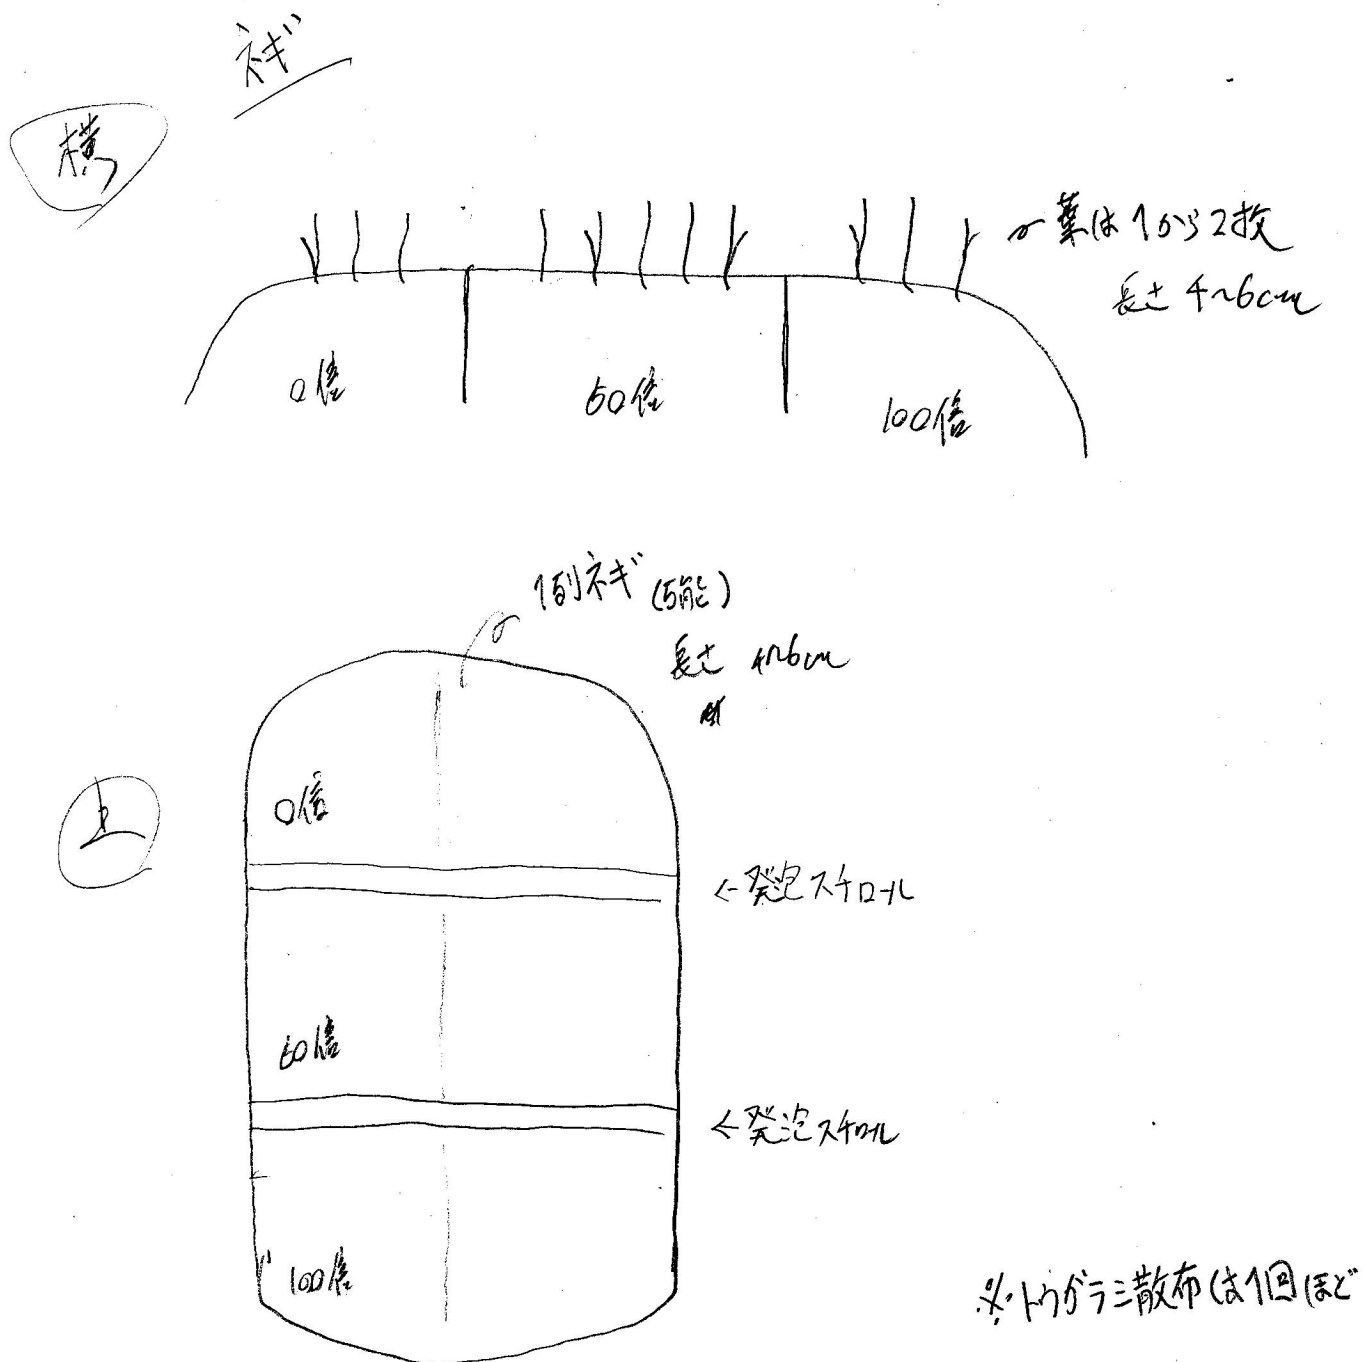 ネギ
横
葉は1から2枚
長さ 4~6cm
0倍
60倍
100倍
1列ネギ
長さ 4~6cm
上
0倍
←発泡スチロール
60倍
←発泡スチロール
100倍
※トウガラシ散布は1回ほど